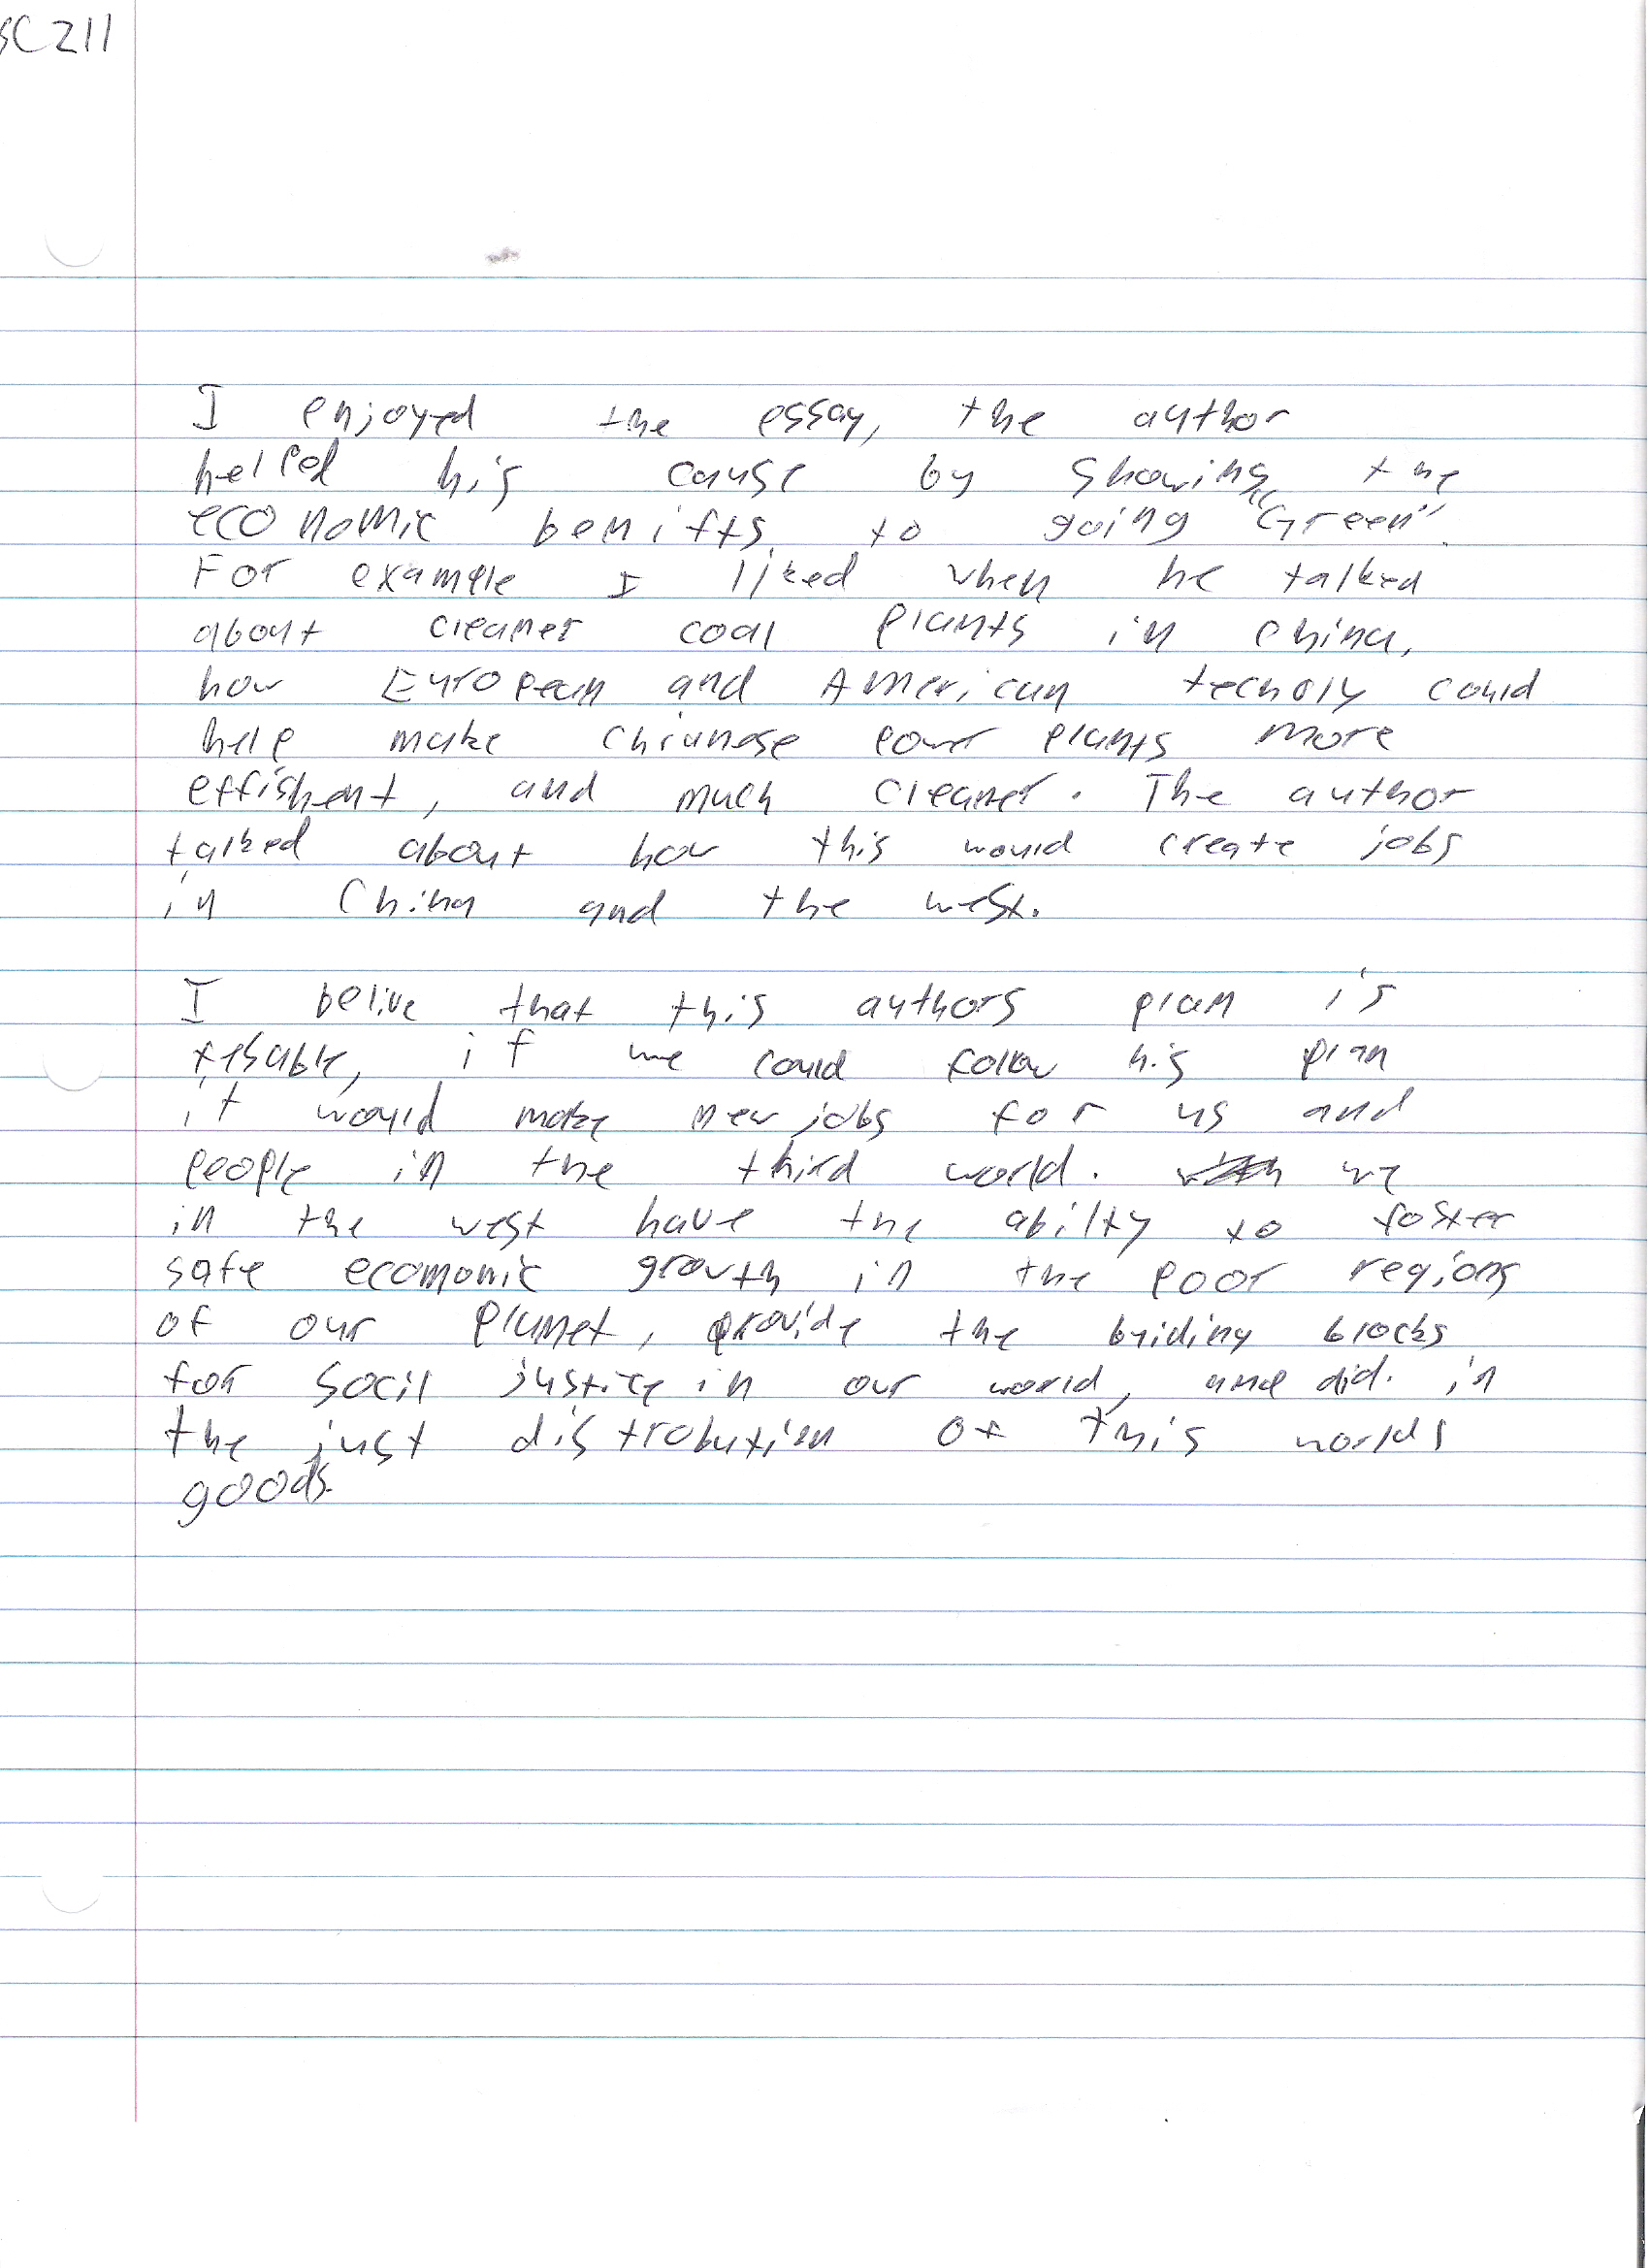 SC 211
I enjoyed the essay, the author
helped his cause by showing the
economic benifts to going "Green".
For example I liked when he talked
about cleaner coal plants in China,
how European and American technoly could
help make Chrianese power plants more
effishent, and much cleaner. The author
talked about how this would create jobs
in China and the west.
I belive that this authors plan is
fesable, if we could follow his plan
it would make new jobs for us and
people in the third world. we
in the west have the abilty to foster
safe ecomonic growth in the poor regions
of our planet, provide the buiding blocks
for socil justice in our world, and in
the just distrobution of this worlds
goods.